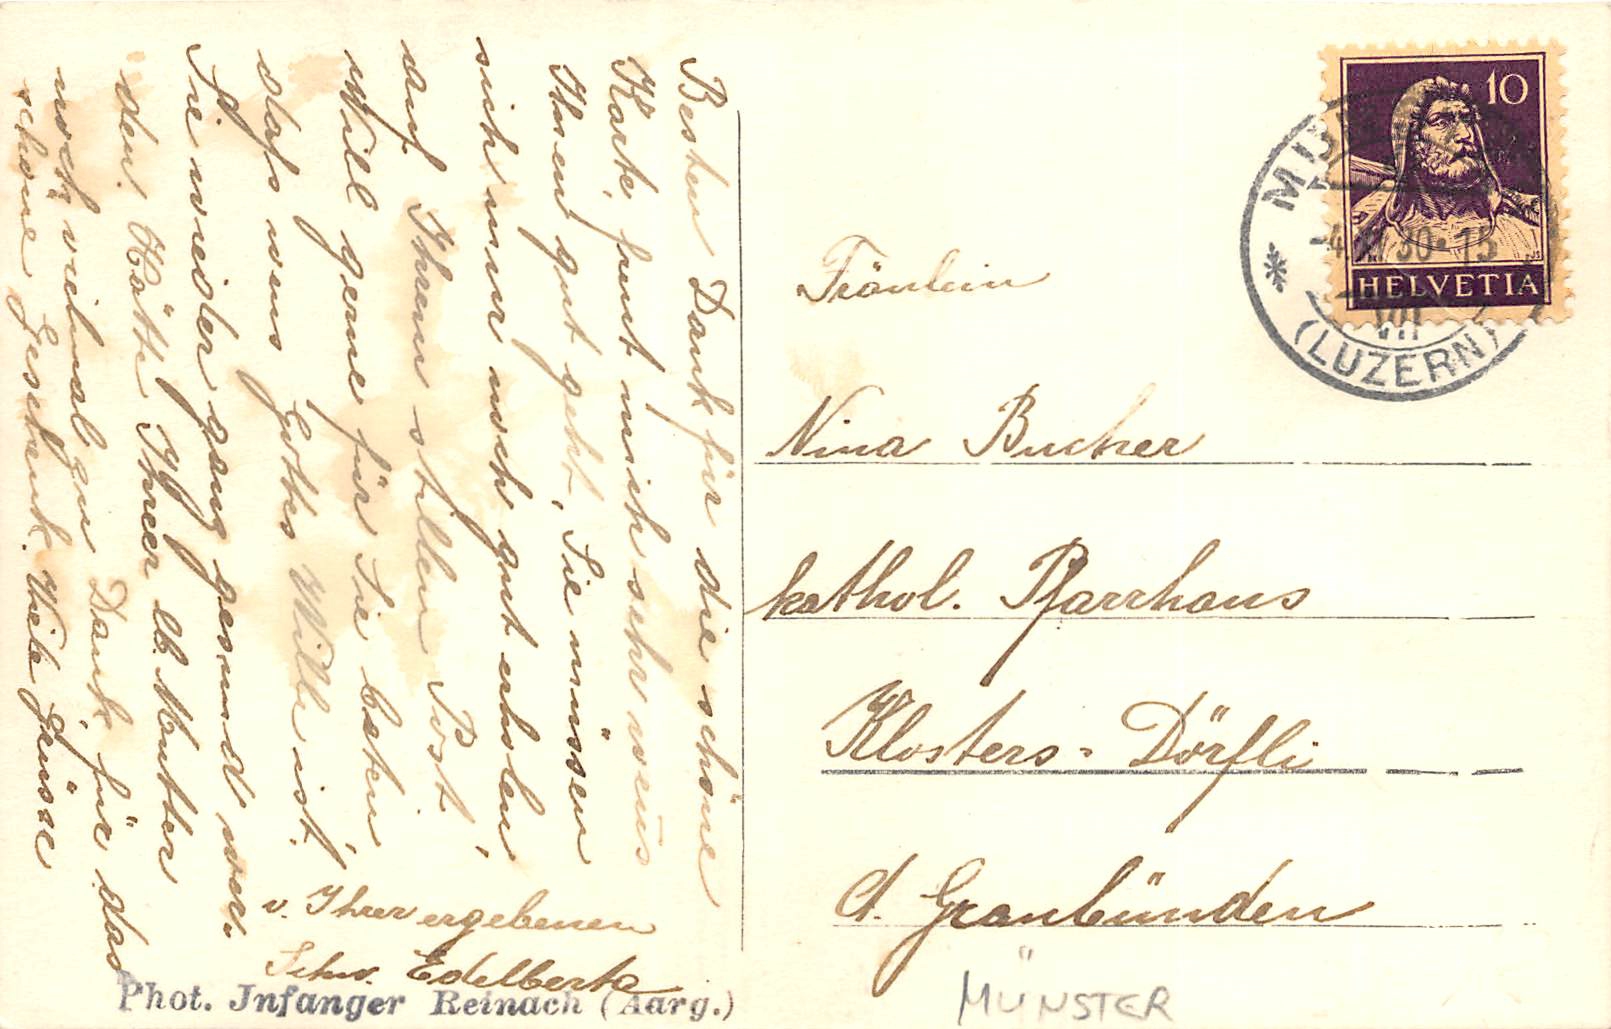 Besten Dank für die schöne
Karte, freut mich sehr wenns
Ihnen gut geht, Sie müssen
sich nur noch gut erholen
auf Ihrem stillen Post,
Will gerne für Sie beten,
dass wens Gottes Wille ist,
Sie wieder ganz gesund wer-
den. Hätte Ihrer lb. Mutter
noch vielmal gen Dank für das
schöne Geschenk. Viele Grüsse
v. Ihrer ergebenen
Schw. Edelberta
Phot. Jnfanger Reinach (Aarg.)
10
HELVETIA
(LUZERN)
VII
Fräulein
Nina Bucher
kathol. Pfarrhaus
Klosters-Dörfli
Ct. Graubünden
MÜNSTER